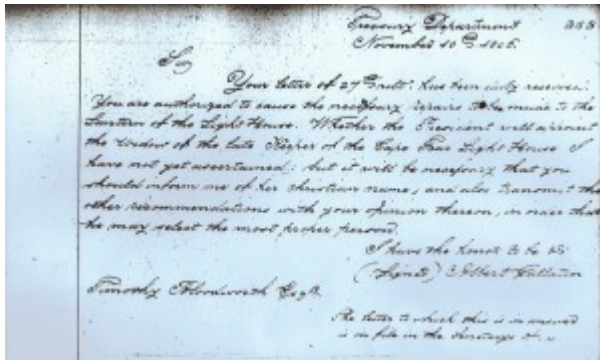 Treasury Department
November 10th 1806.
Sir
Your letter of 27th ult: has been duly received.
You are authorized to cause the necessary repairs to be made to the
Lantern of the Light House. Whether the President will appoint
the Widow of the late Keeper of the Cape Fear Light House I
have not yet ascertained: but it will be necessary that you
should inform me of her christian name, and also transmit the
other recommendations with your opinion thereon, in order that
he may select the most proper person.
I have the honor to be &c
(Signed) Albert Gallatin
Timothy Bloodworth Esqr.
The letter to which this is an answer
is on file in the